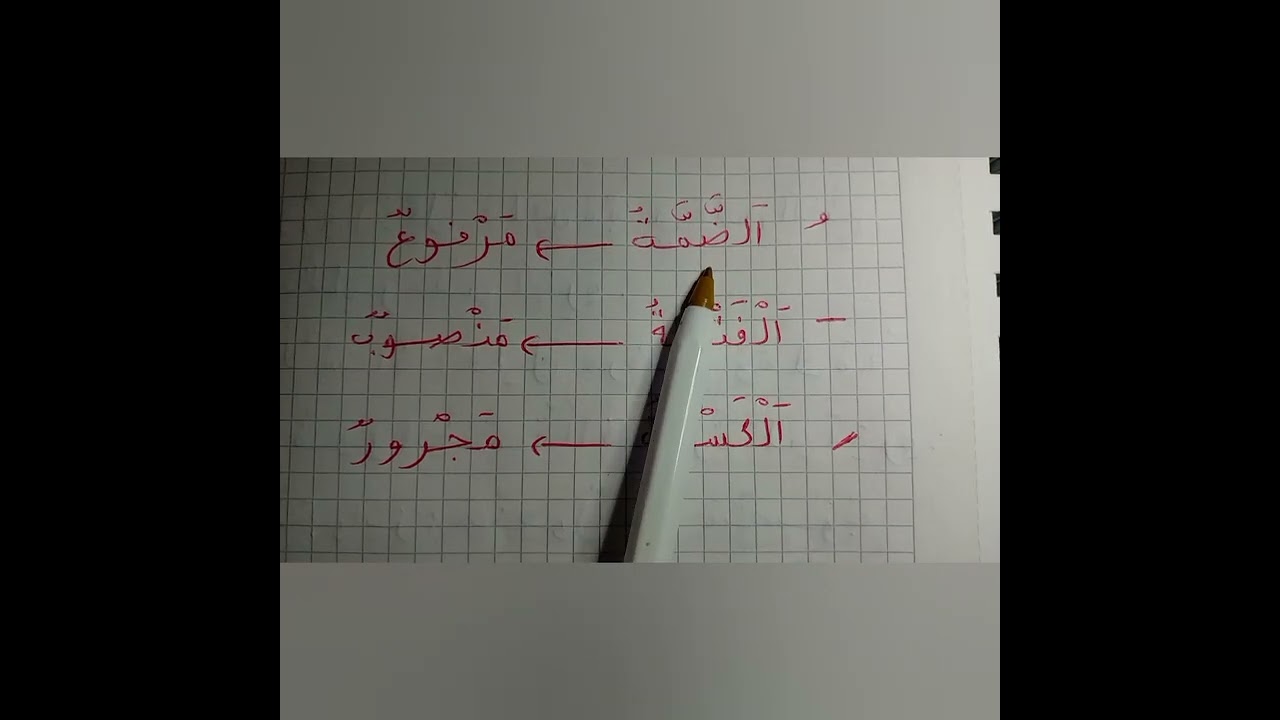 ـُ اَلضَّمَّةُ ← مَرْفُوعٌ
ـَ اَلْفَتْحَةُ ← مَنْصُوبٌ
ـِ ← مَجْرُورٌ